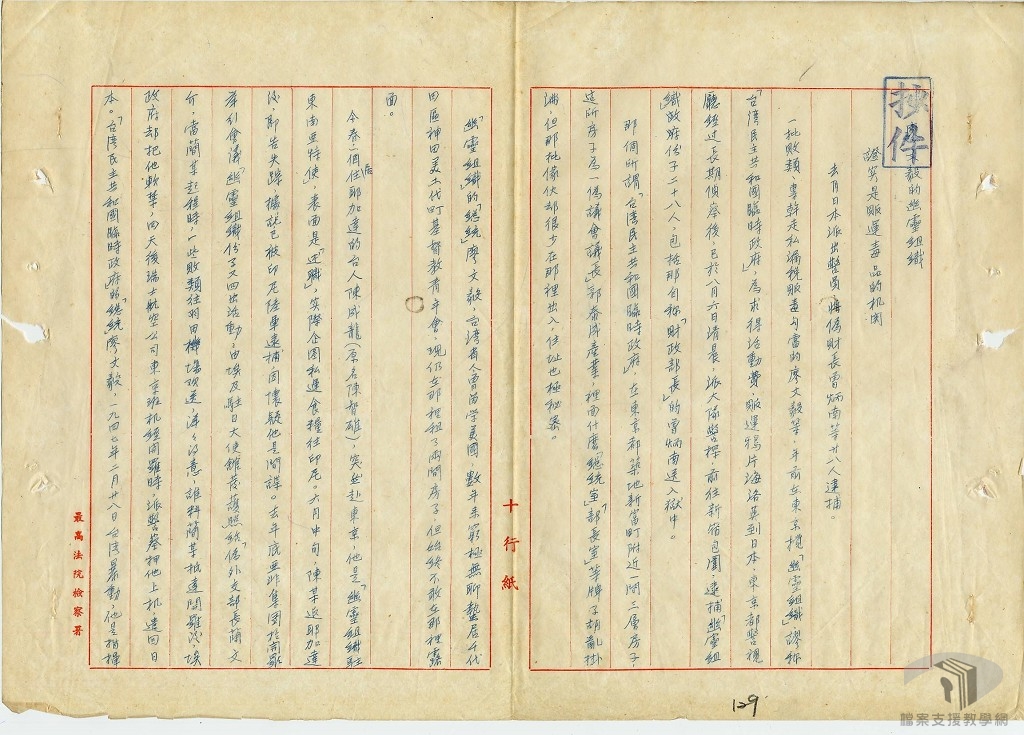 抄件
毅的幽靈組織
證実是販運毒品的机関
去月日本派出警員將偽財長曾炳南等廿八人逮捕。
一批敗類,專幹走私漏稅販毒勾當的廖文毅等,年前在東京攪「幽靈組織」謬称
「台湾民主共和国臨時政府」,為求得活動費,販運鴉片海洛英到日本,東京都警視
廳経过長期偵察後,已於八月六日清晨,派大隊警探,前往新宿包圍,逮捕「幽靈組
織政府」份子二十八人,包括那自称「財政部長」的曾炳南送入獄中。
那個所謂「台湾民主共和国臨時政府」,在東京都築地新富町附近一間三層房子,
這所房子為一偽議會議長郭泰成產業,裡面什麼「總統室」「部長室」等牌子胡亂掛
滿,但那批傢伙却很少在那裡出入,住址也極秘密。
「幽靈組織的「總統」廖文毅,台湾省人,曾留学美国,數年來窮極無聊蟄居千代
田區神田美土代町基督教青年會,現仍在那裡租了兩間房子,但始終不敢在那裡露
面。
今春一個住居耶加達的台人陳威龍(原名陳智雄),突然赴東京,他是「幽靈組織駐
東南亞特使」,表面是「述職」,実際企圖私運食糧往印尼。六月中旬,陳某返耶加達
後,即告失踪,據說已被印尼陸軍逮捕,因懷疑他是間諜。去年底亞非集團於開羅
舉行會議,「幽靈組織份子」又四出活動,由埃及駐日大使館發護照給「偽外交部長」蕳文
介,當蕳某起程時,一些敗類往羽田機場欢送,洋洋得意,誰料蕳某抵達開羅後,埃
政府却把他軟禁,四天後瑞士航空公司東京班机経開羅時,派警察押他上机遣回日
本。「台湾民主共和國臨時政府」的「總統」廖文毅,一九四七年二月廿八日台湾暴動,他是指揮
十行紙
最高法院檢察署
129
檔案支援教學網